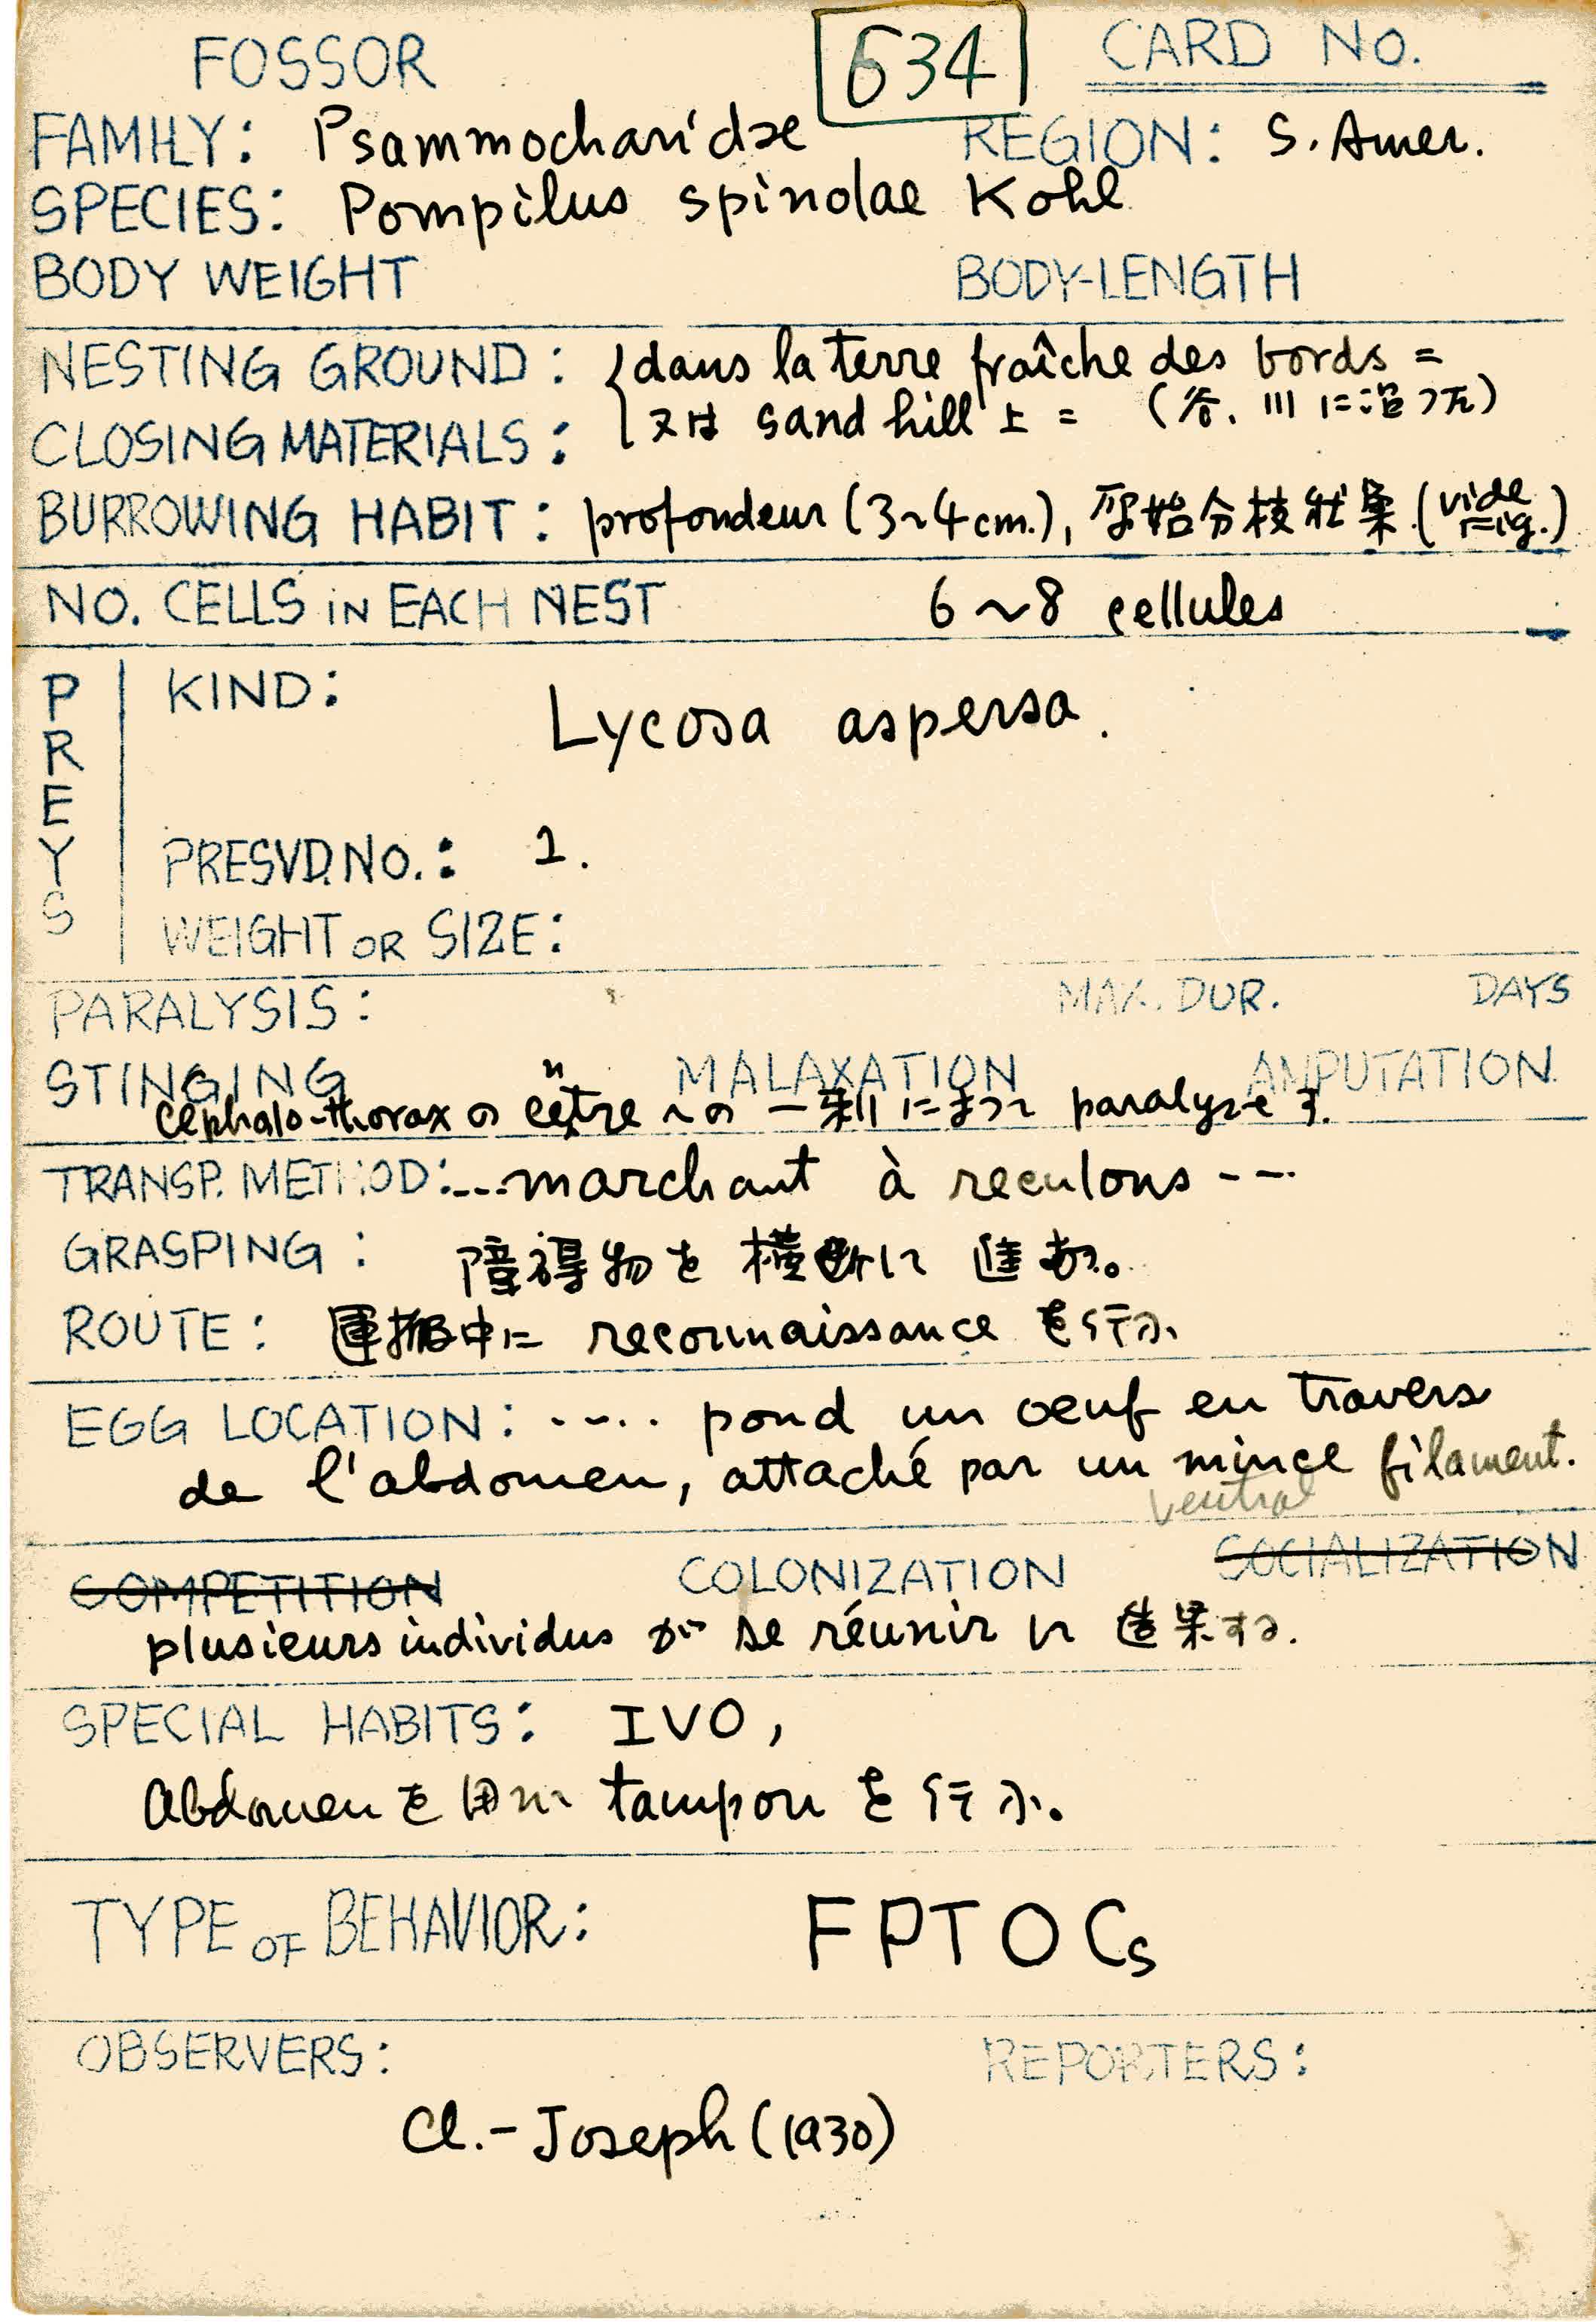 FOSSOR 634 CARD NO.
FAMILY: Psammocharidae REGION: S. Amer.
SPECIES: Pompilus spinolae Kohl
BODY WEIGHT BODY-LENGTH
NESTING GROUND: dans la terre fraîche des bords =
又は sand hill 上 = (谷, 川に沿った)
CLOSING MATERIALS:
BURROWING HABIT: profondeur (3~4cm.), 原始分枝状巣 (vide Fig.)
NO. CELLS IN EACH NEST 6~8 cellules
PREYS
KIND: Lycosa aspersa.
PRESVD. NO.: 1.
WEIGHT OR SIZE:
PARALYSIS: MAX. DUR. DAYS
STINGING MALAXATION AMPUTATION
Cephalo-thorax の centre への 一刺によって paralyze す.
TRANSP. METHOD: ...marchant à reculons ---
GRASPING: 障碍物を横断して進む。
ROUTE: 運搬中に reconnaissance を行ふ
EGG LOCATION: .... pond un oeuf en travers
de l'abdomen, attaché par un mince filament.
ventral
COMPETITION COLONIZATION SOCIALIZATION
plusieurs individus が se réunir して 造巣する.
SPECIAL HABITS: IVO,
Abdomen を用いて tampon を行ふ。
TYPE OF BEHAVIOR: FPTOCs
OBSERVERS: REPORTERS:
Cl.-Joseph (1930)